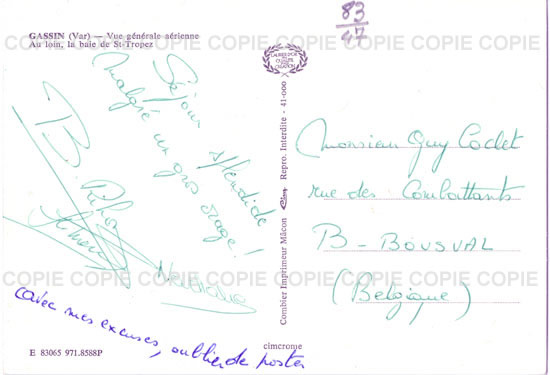 GASSIN (Var) — Vue générale aérienne
Au loin, la baie de St-Tropez
83
47
COPIE COPIE COPIE COPIE COPIE COPIE COPIE
Séjour splendide
malgré un gros orage !
B.
LAURÉAT DE LA COUPE DU CHANCY
Combier Imprimeur Mâcon Cim Repro. Interdite - 41-000
Monsieur Guy Codet
rue des Combattants
B - BOUSVAL
(Belgique)
COPIE COPIE COPIE COPIE COPIE COPIE COPIE
COPIE COPIE COPIE COPIE COPIE COPIE COPIE
(avec mes excuses, oublier de poster
E 83065 971.8588P
cimcrome